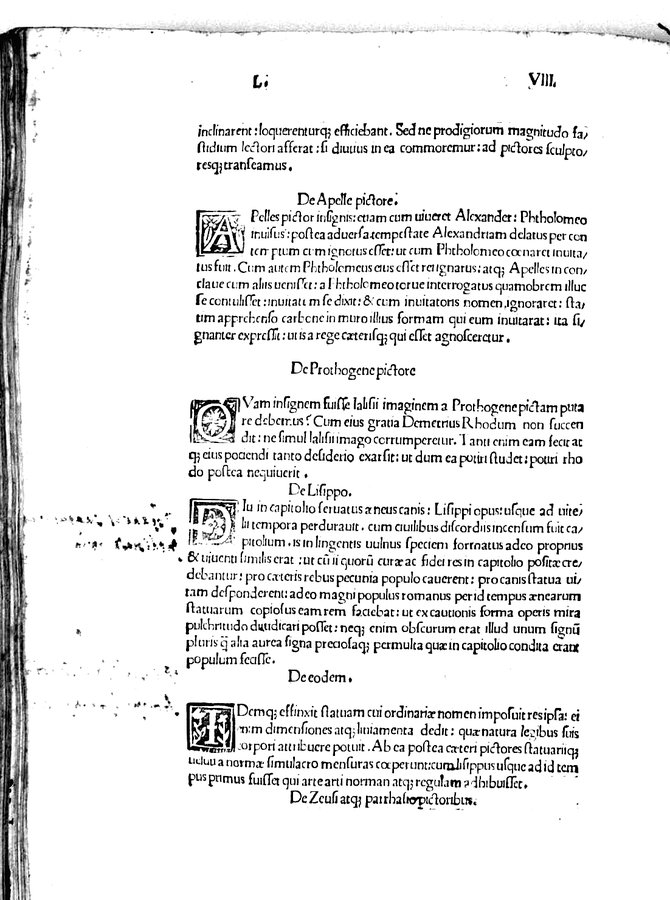 L. VIII.
inclinarent: loquerenturq; efficiebant. Sed ne prodigiorum magnitudo fa/
stidium lectori afferat: si diutius in ea commoremur: ad pictores sculpto/
resq; transeamus.
De Apelle pictore.
APelles pictor insignis: etiam cum uiueret Alexander: Phtholomeo
inuisus: postea aduersa tempestate Alexandriam delatus per con
temptum cum ignotus esset: ut cum Phtholomeo cœnaret inuita/
tus fuit. Cum autem Phtholomeus eius esset rei ignarus: atq; Apelles in con/
claue cum aliis uenisset: a Phtholomeo torue interrogatus quamobrem illuc
se contulisset: inuitatum se dixit: & cum inuitatoris nomen, ignoraret: sta/
tim apprehenso carbone in muro illius formam qui eum inuitarat: ita si/
gnanter expressit: ut is a rege cæterisq; qui esset agnosceretur.
De Prothogene pictore
QVam insignem fuisse Ialisii imaginem a Prothogene pictam puta
re debemus? Cum eius gratia Demetrius Rhodum non succen
dit: ne simul Ialisii imago corrumperetur. Tanti enim eam fecit at
q; eius potiendi tanto desiderio exarsit: ut dum ea potiri studet: potiri rho
do postea nequiuerit.
De Lisippo.
DIu in capitolio seruatus æneus canis: Lisippi opus: usque ad uite/
lii tempora perdurauit. cum ciuilibus discordiis incensum fuit ca/
pitolium. is in lingentis uulnus speciem formatus adeo proprius
& uiuenti similis erat: ut cū ii quorū curæ ac fidei res in capitolio positæ cre/
debantur: pro cæteris rebus pecunia populo cauerent: pro canis statua ui/
tam desponderent: adeo magni populus romanus per id tempus ænearum
statuarum copiosus eam rem faciebat: ut ex cautionis forma operis mira
pulchritudo diudicari posset: neq; enim obscurum erat illud unum signū
pluris q̄ alia aurea signa preciosaq; permulta quæ in capitolio condita erant
populum fecisse.
De eodem.
IDemq; effinxit statuam cui ordinariæ nomen imposuit res ipsa: ei
enim dimensiones atq; liniamenta dedit: quæ natura legibus suis
corpori attribuere potuit. Ab ea postea cæteri pictores statuariiq;
uelut a normæ simulacro mensuras cœperunt: cum lisippus usque ad id tem
pus primus fuisset qui arte arti norman atq; regulam adhibuisset.
De Zeusi atq; parrhasio pictoribus.